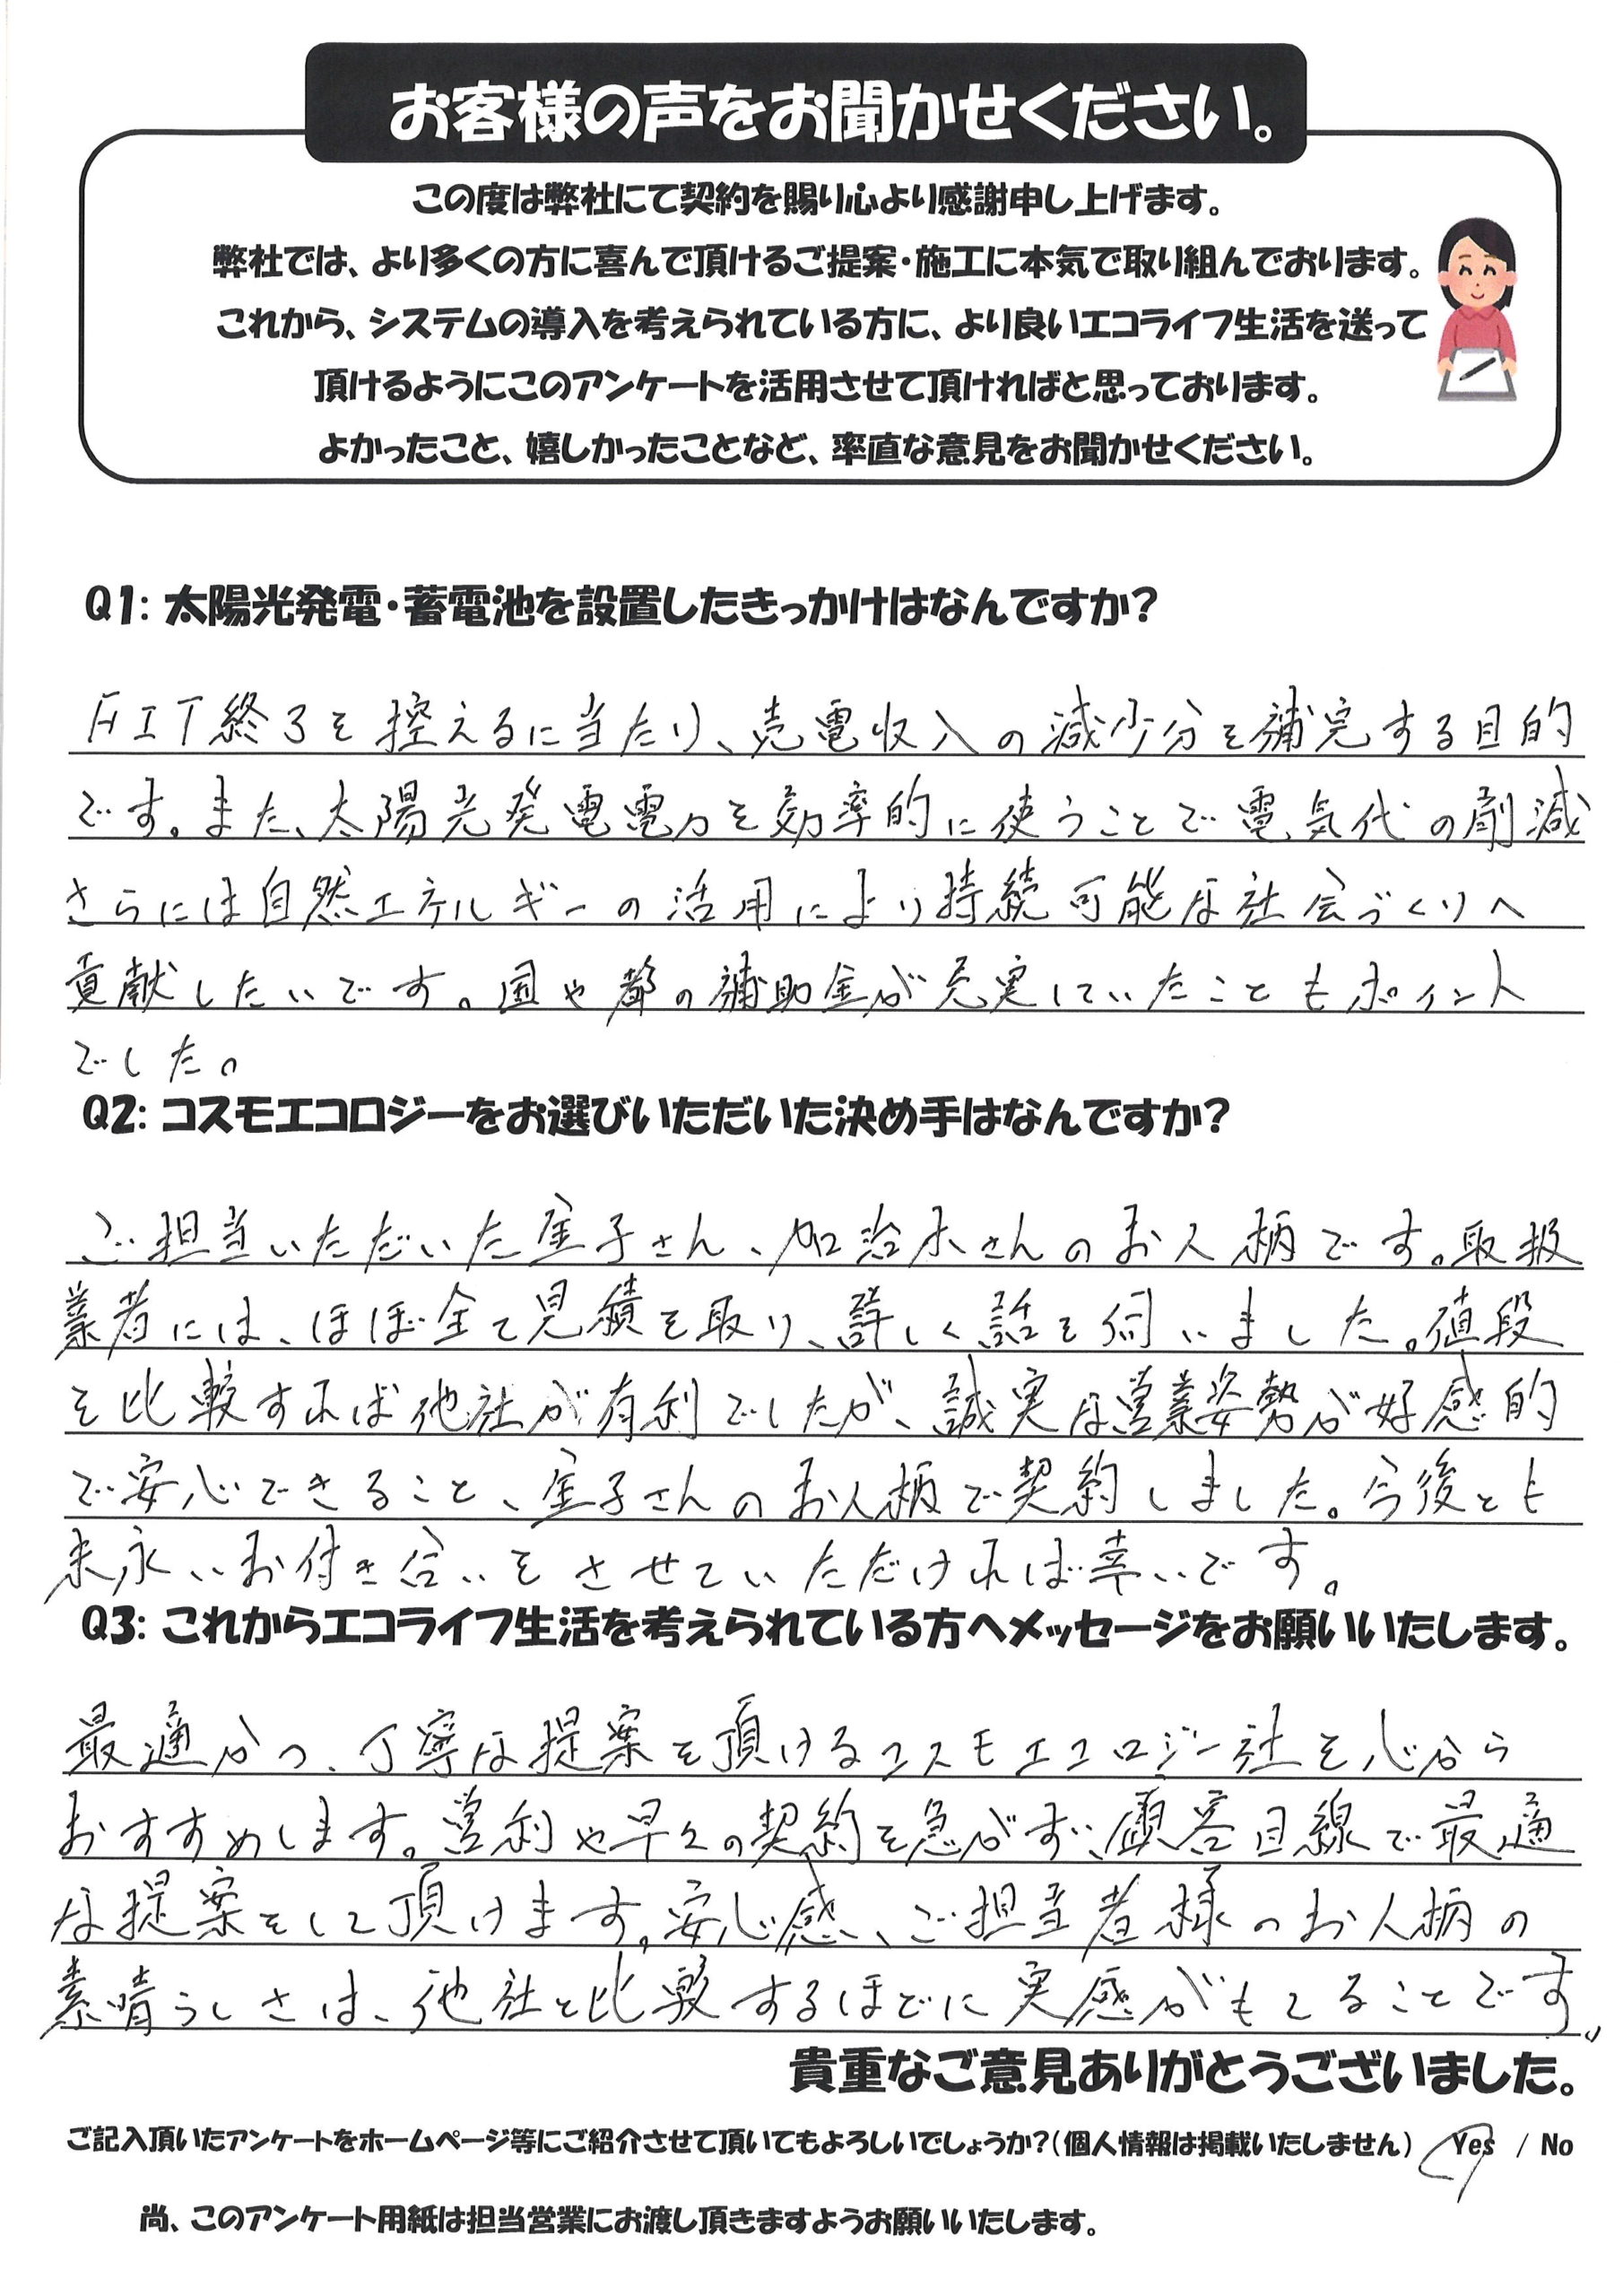 お客様の声をお聞かせください。
この度は弊社にて契約を賜り心より感謝申し上げます。
弊社では、より多くの方に喜んで頂けるご提案・施工に本気で取り組んでおります。
これから、システムの導入を考えられている方に、より良いエコライフ生活を送って
頂けるようにこのアンケートを活用させて頂ければと思っております。
よかったこと、嬉しかったことなど、率直な意見をお聞かせください。
Q1: 太陽光発電・蓄電池を設置したきっかけはなんですか?
FIT終了を控えるに当たり、売電収入の減少分を補完する目的
です。また、太陽光発電電力を効率的に使うことで電気代の削減
さらには自然エネルギーの活用により持続可能な社会づくりへ
貢献したいです。国や都の補助金が充実していたこともポイント
でした。
Q2: コスモエコロジーをお選びいただいた決め手はなんですか?
ご担当いただいた金子さん、加治木さんのお人柄です。取扱
業者には、ほぼ全て見積を取り、詳しく話を伺いました。値段
を比較すれば他社が有利でしたが、誠実な営業姿勢が好感的
で安心できること、金子さんのお人柄で契約しました。今後とも
末永いお付き合いをさせていただければ幸いです。
Q3: これからエコライフ生活を考えられている方へメッセージをお願いいたします。
最適かつ、丁寧な提案を頂けるコスモエコロジー社を心から
おすすめします。営利や早々の契約を急がず、顧客目線で最適
な提案をして頂けます。安心感、ご担当者様のお人柄の
素晴らしさは、他社と比較するほどに実感がもてることです。
貴重なご意見ありがとうございました。
ご記入頂いたアンケートをホームページ等にご紹介させて頂いてもよろしいでしょうか?(個人情報は掲載いたしません) Yes / No
尚、このアンケート用紙は担当営業にお渡し頂きますようお願いいたします。